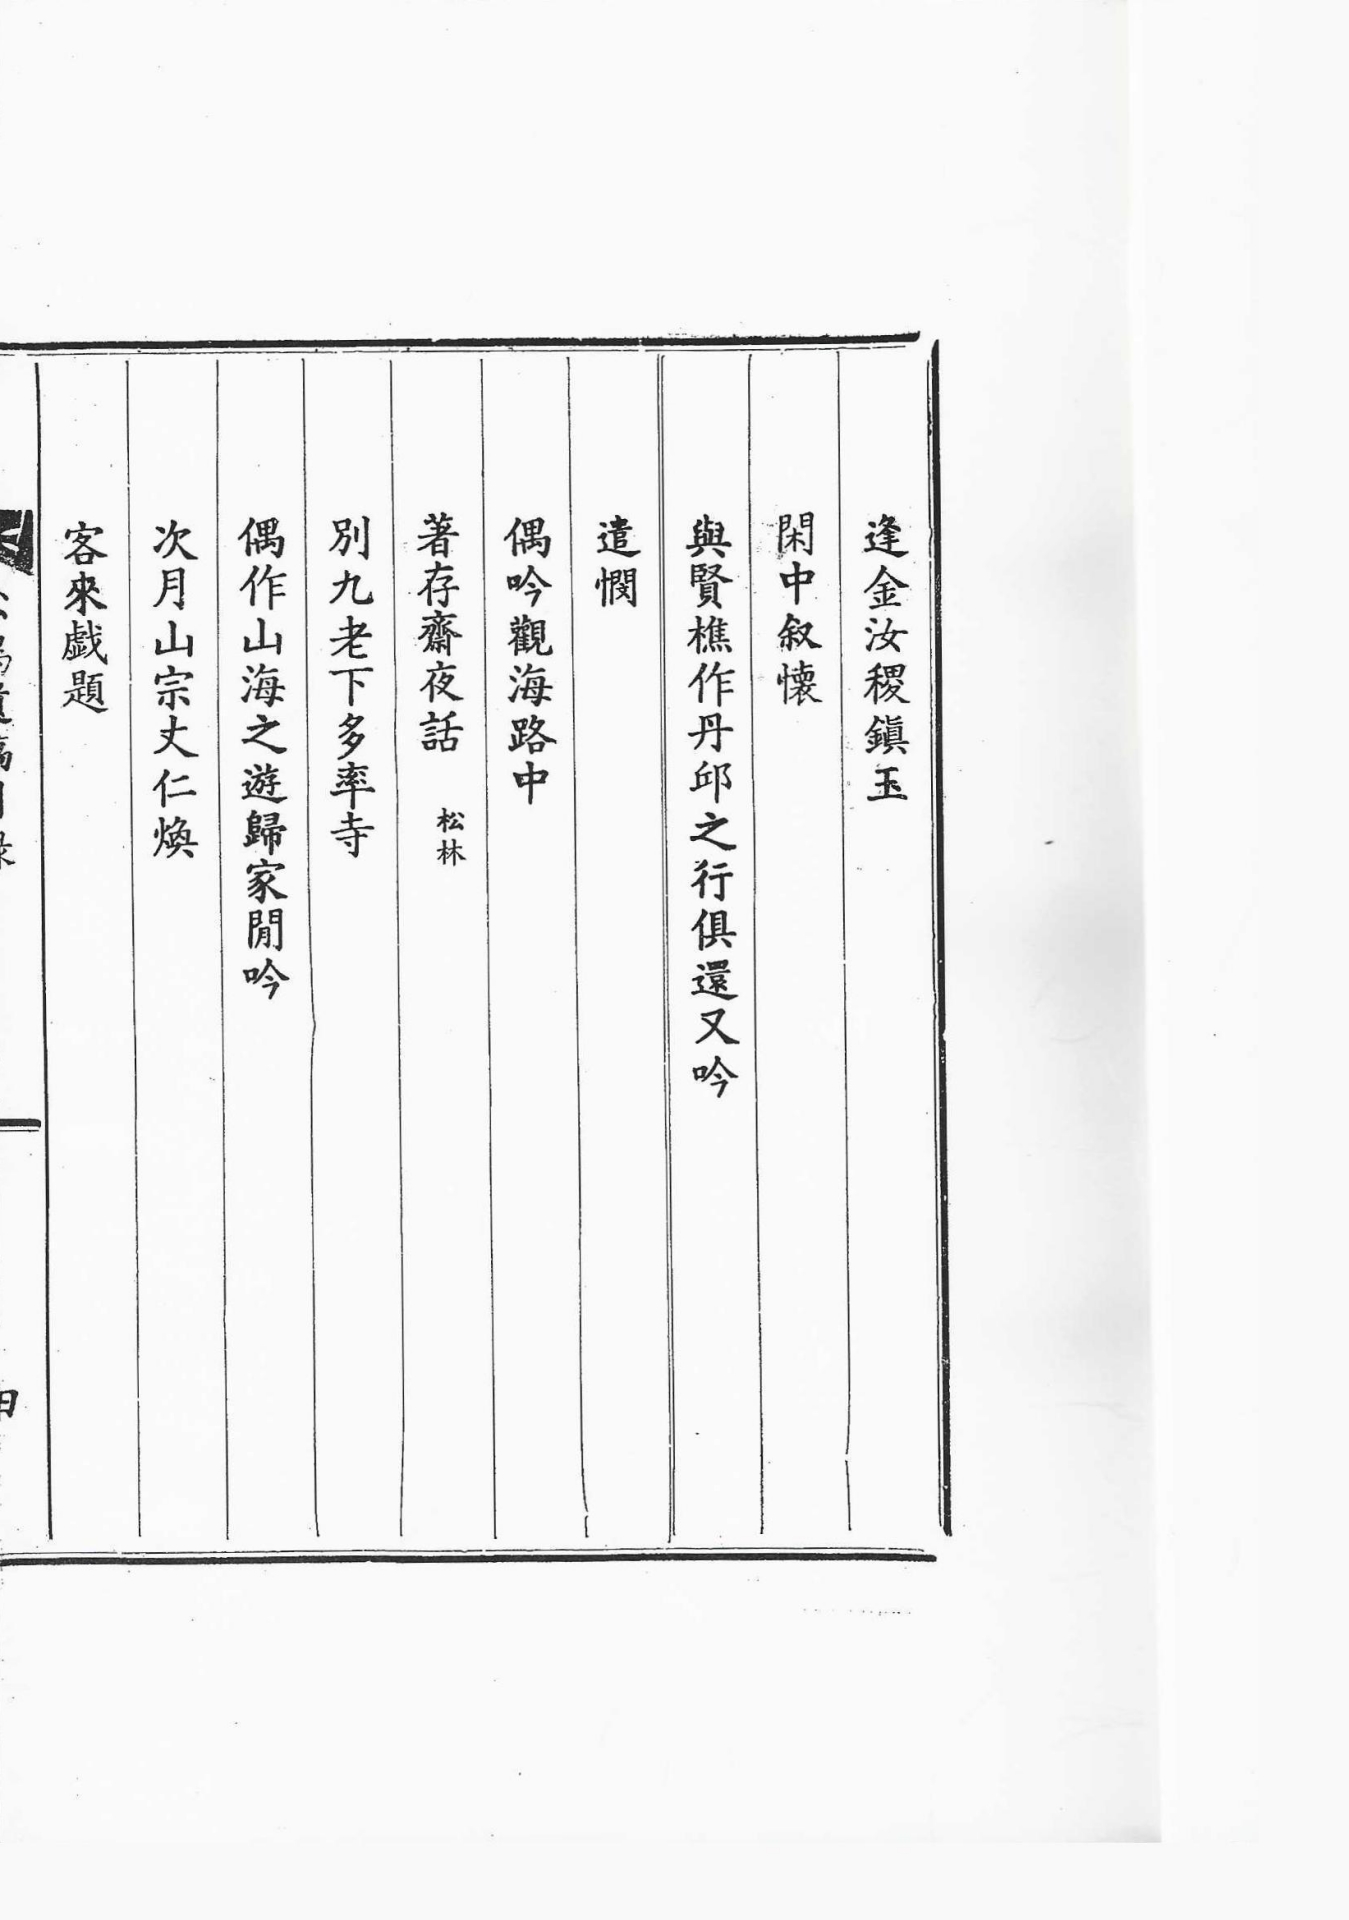 逢金汝稷鎭玉
閑中叙懷
與賢樵作丹邱之行俱還又吟
遣憫
偶吟觀海路中
著存齋夜話 松林
別九老下多率寺
偶作山海之遊歸家閒吟
次月山宗丈仁煥
客來戱題